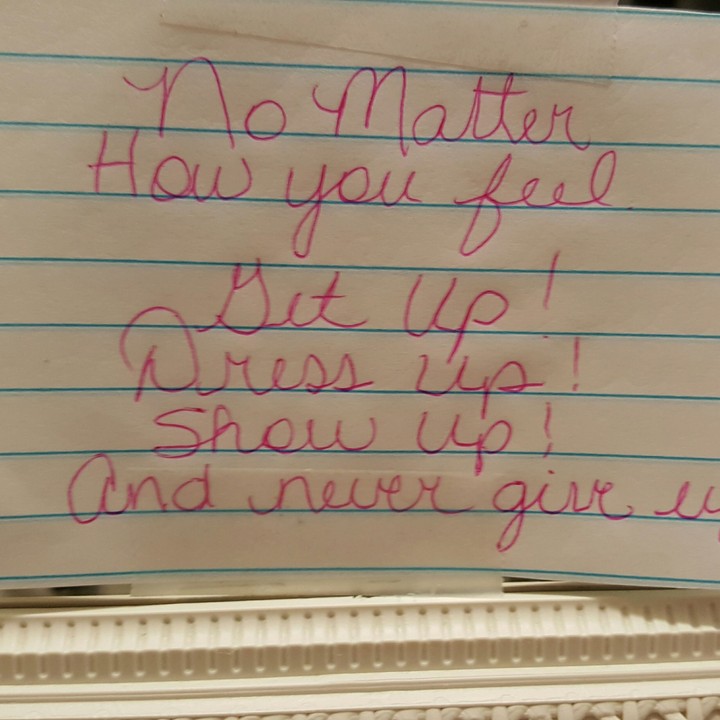 No Matter
How you feel
Get Up!
Dress up!
Show up!
And never give